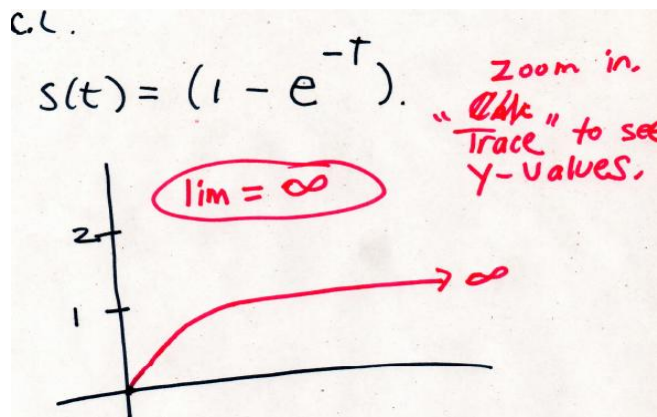 C.L.
s(t) = (1 - e^-T).
Zoom in.
"Trace" to see
Y-values.
lim = ∞
2
1
∞